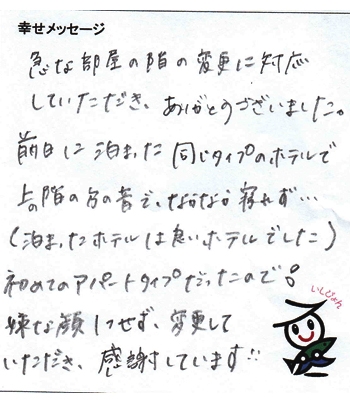 幸せメッセージ
急な部屋の階の変更に対応
していただき、ありがとうございました。
前日に泊まった同じタイプのホテルで
上の階の方の音で、なかなか寝れず…
(泊まったホテルは良いホテルでした)
初めてのアパートタイプだったので
嫌な顔1つせず、変更して
いただき、感謝しています!!
いしぴょん